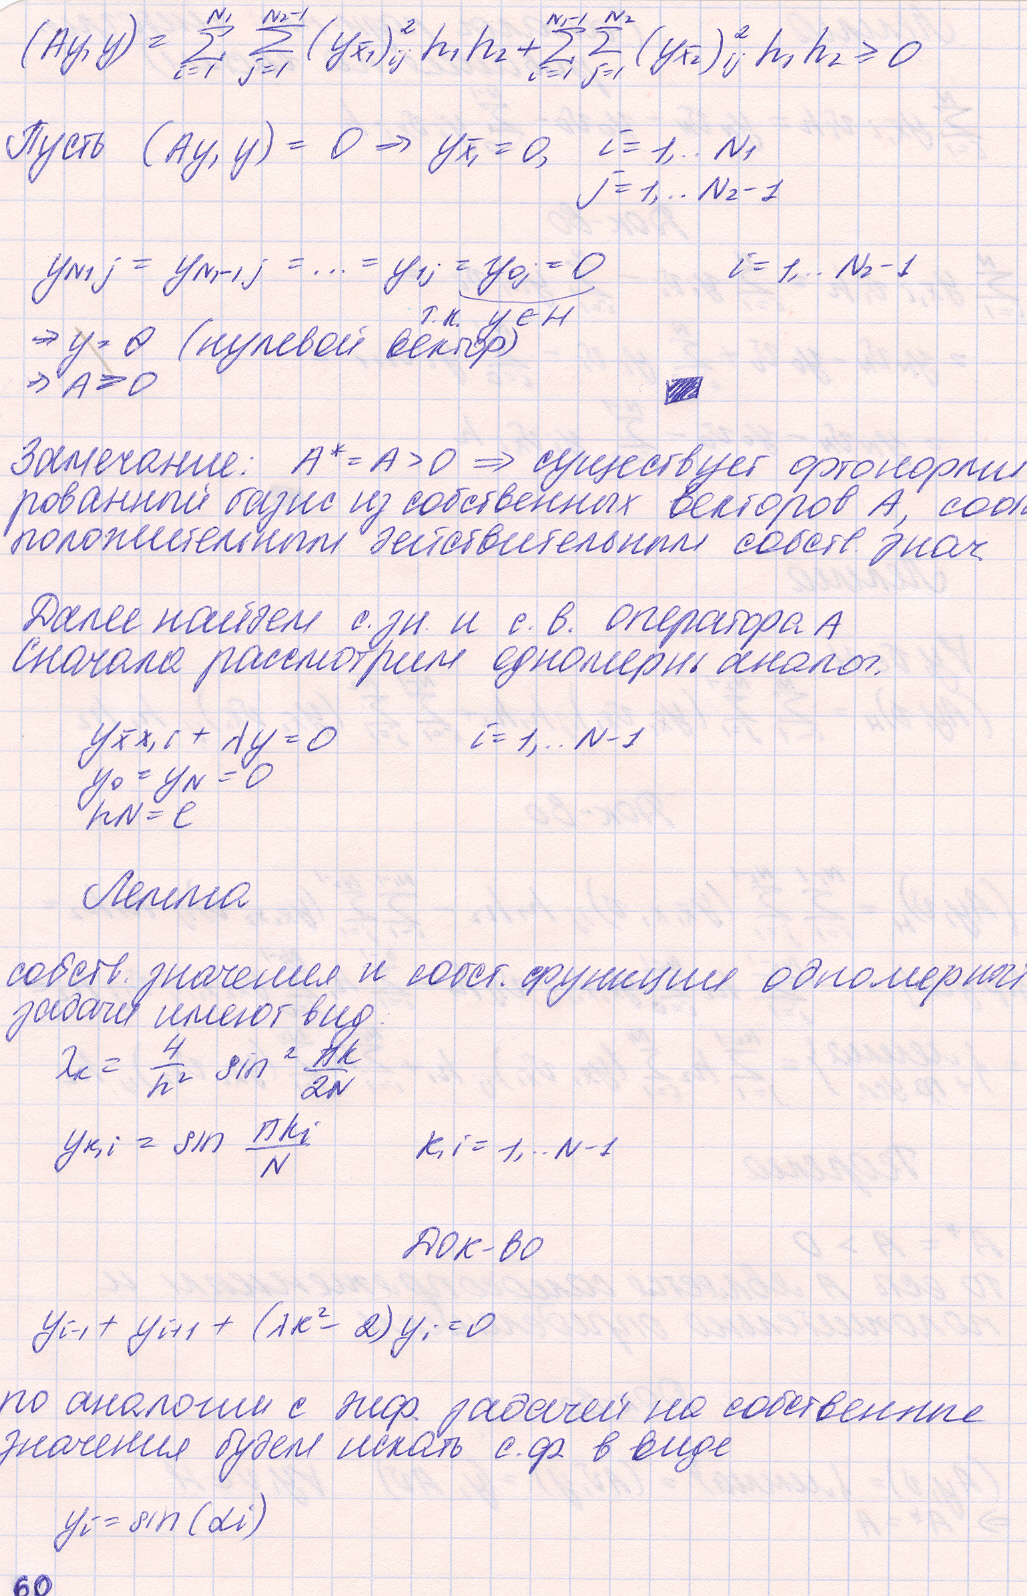 (Ay, y) = ∑_{i=1}^{N₁} ∑_{j=1}^{N₂-1} (y_{x̄₁})²_{ij} h₁ h₂ + ∑_{i=1}^{N₁-1} ∑_{j=1}^{N₂} (y_{x̄₂})²_{ij} h₁ h₂ ≥ 0
Пусть (Ay, y) = 0 ⇒ y_{x̄₁} = 0, i = 1,.. N₁
j = 1,.. N₂-1
y_{N₁j} = y_{N₁-1j} = ... = y_{1j} = y_{0j} = 0 i = 1,.. N₂-1
т.к. y ∈ H
⇒ y = θ (нулевой вектор)
⇒ A > 0
Замечание: A* = A > 0 ⇒ существует ортонорми
рованный базис из собственных векторов A, соот
положительным действительным собств знач.
Далее найдем с.зн. и с.в. оператора A
Сначала рассмотрим одномерн. аналог.
y_{x̄x,i} + λy = 0 i = 1,.. N-1
y₀ = y_N = 0
hN = ℓ
Лемма
собств. значения и собст. функции одномерный
задачи имеют вид:
λ_к = 4/h² sin² πk/2N
y_{к,i} = sin πki/N k,i = 1,.. N-1
Док-во
y_{i-1} + y_{i+1} + (λh² - 2) y_i = 0
по аналогии с диф. задачей на собственные
значения будем искать с.ф. в виде
y_i = sin(αi)
60